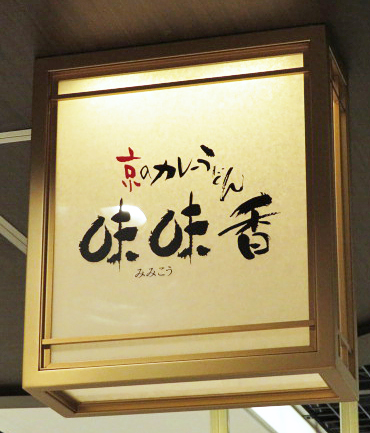 京のカレーうどん
味味香
みみこう